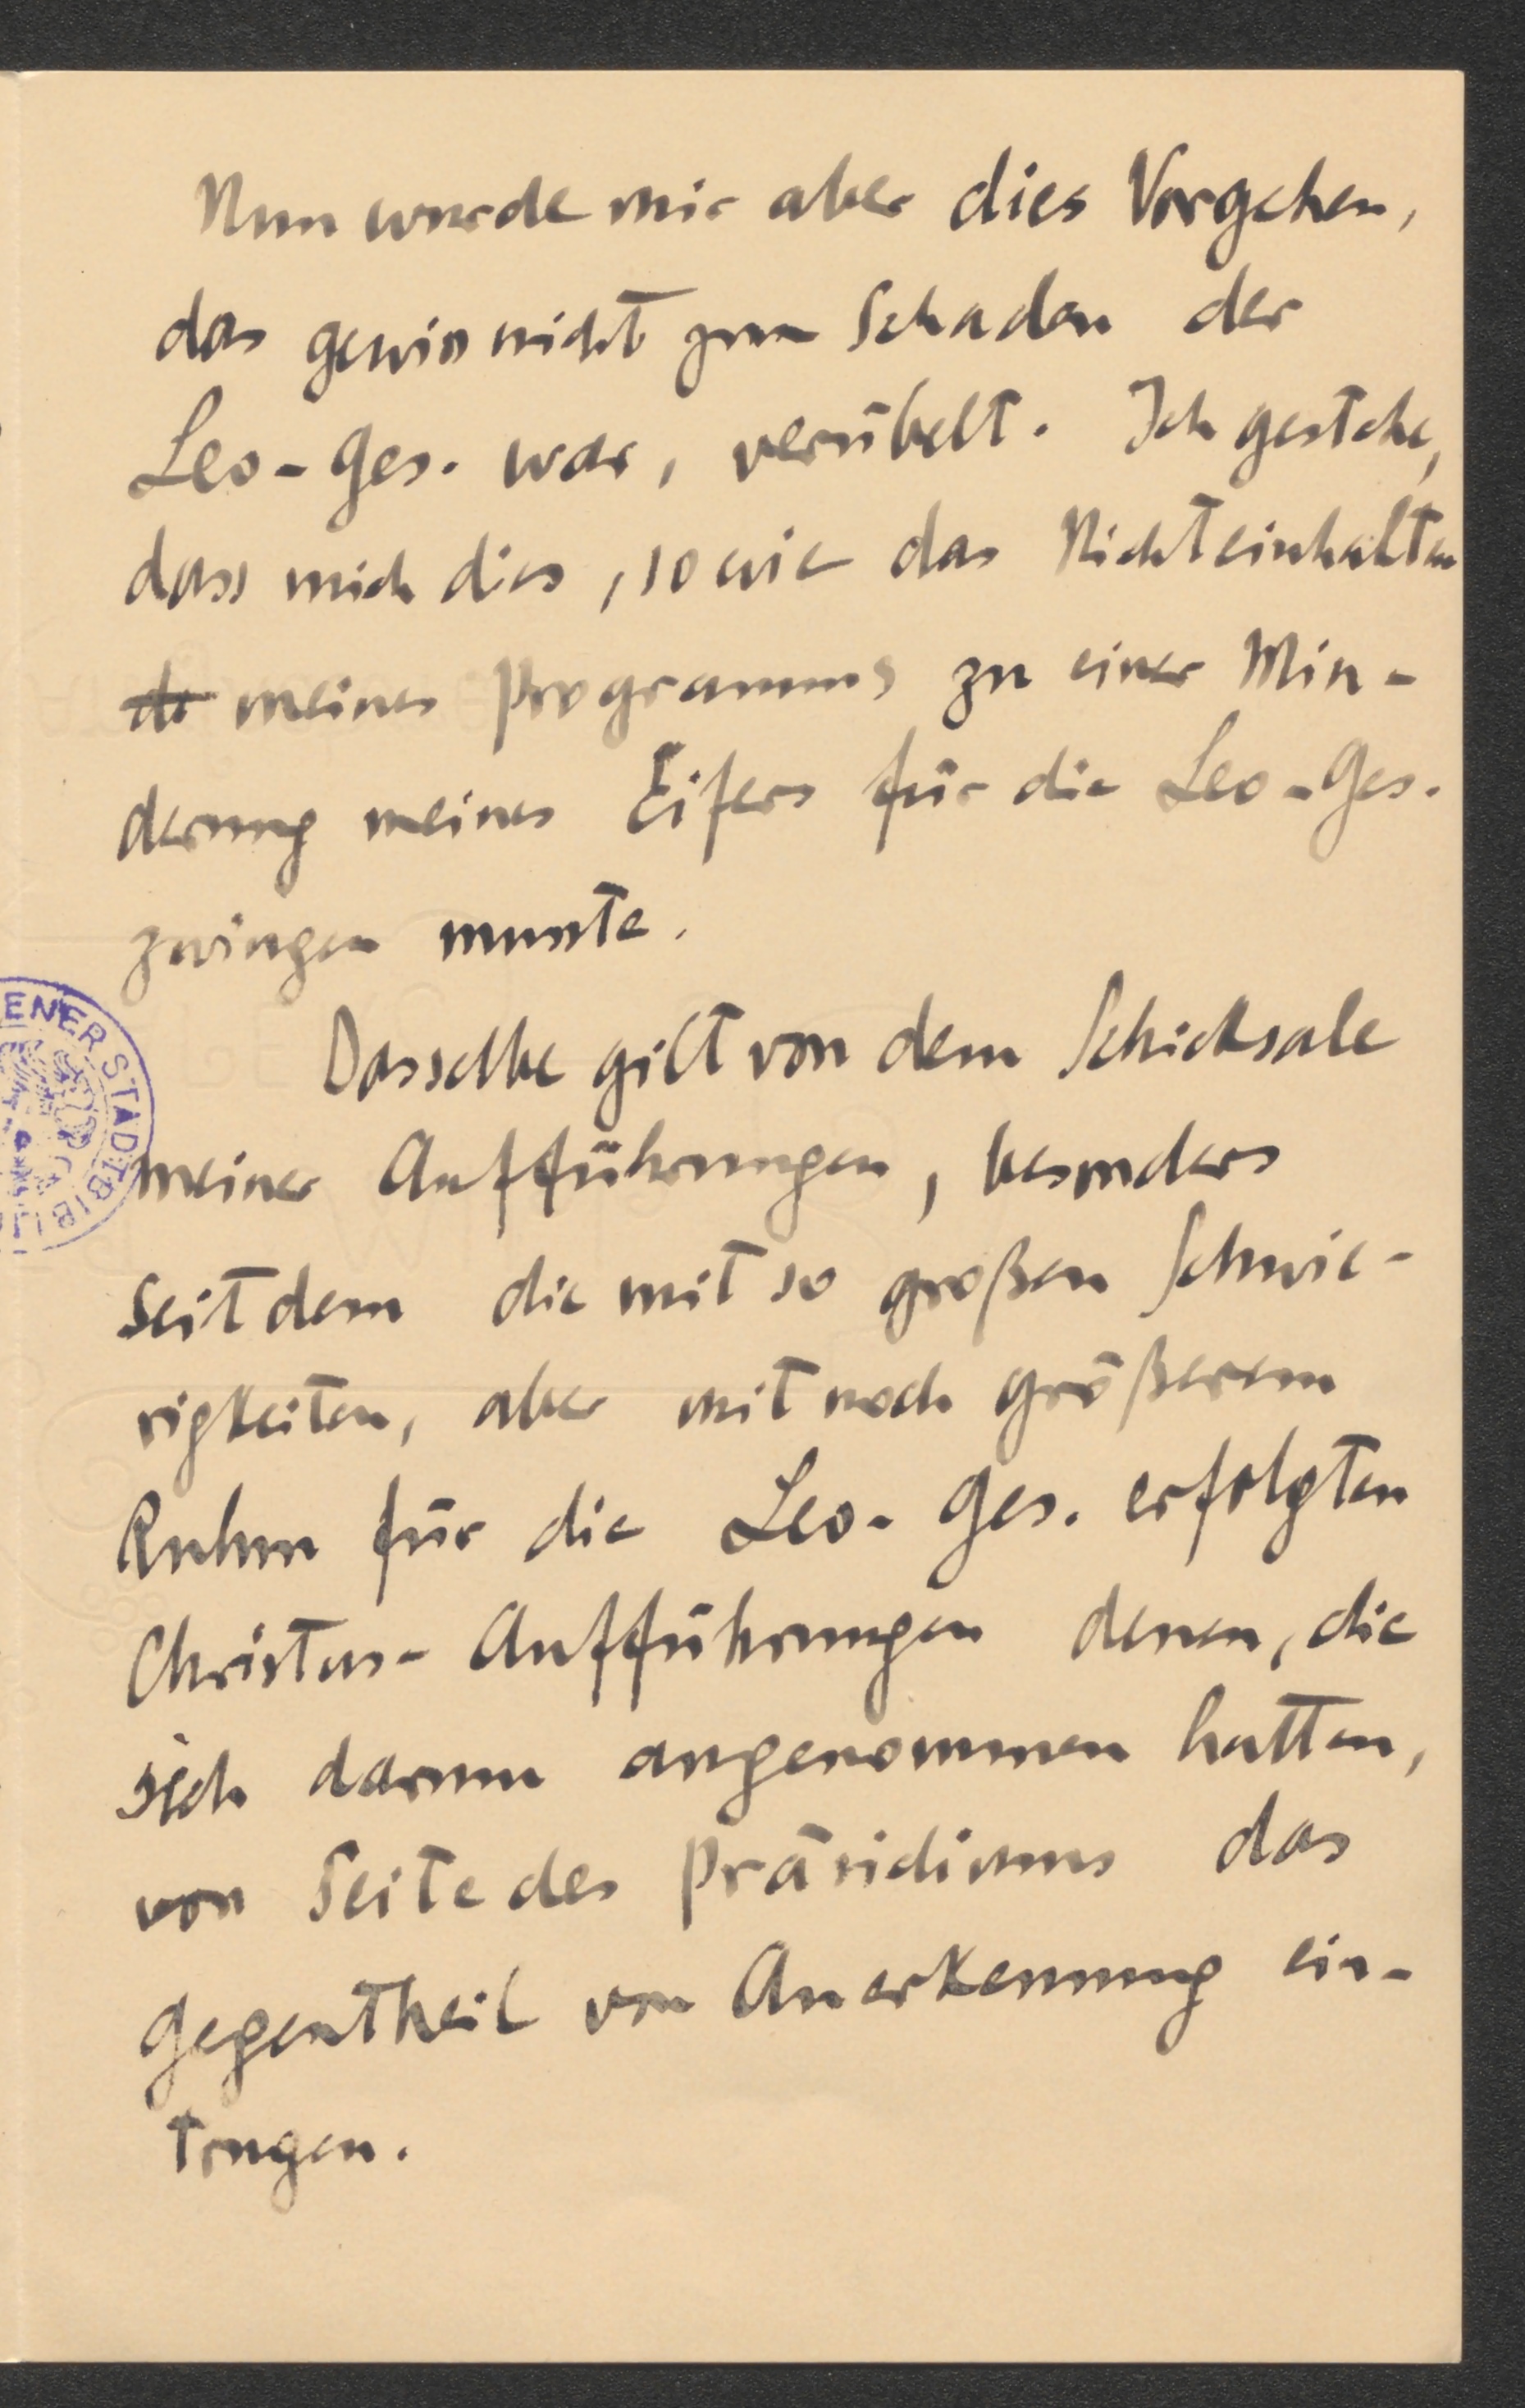 Nun wurde mir aber dies Vorgehen,
das gewiss nicht zum Schaden der
Leo-Ges. war, verübelt. Ich gestehe,
dass mich dies, sowie das Nichteinhalten
de meines Programms zu einer Min-
derung meines Eifers für die Leo-Ges.
zwingen musste.
Dasselbe gilt von dem Schicksale
meiner Aufführungen, besonders
seitdem die mit so großen Schwie-
rigkeiten, aber mit noch größerem
Ruhm für die Leo-Ges. erfolgten
Christus-Aufführungen denen, die
sich darum angenommen hatten,
von Seite des Präsidiums das
Gegentheil von Anerkennung ein-
trugen.
ENER STADTBIBLI